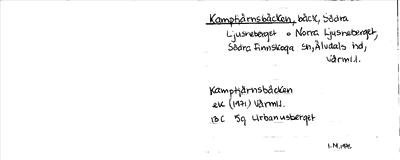 Kamptjärnsbäcken, bäck, Södra
Ljusneberget o Norra Ljusneberget,
Södra Finnskoga sn, Älvdals hd,
Värml.
Kamptjärnsbäcken
ek (1971) Värml.
13C 5g Urbanusberget